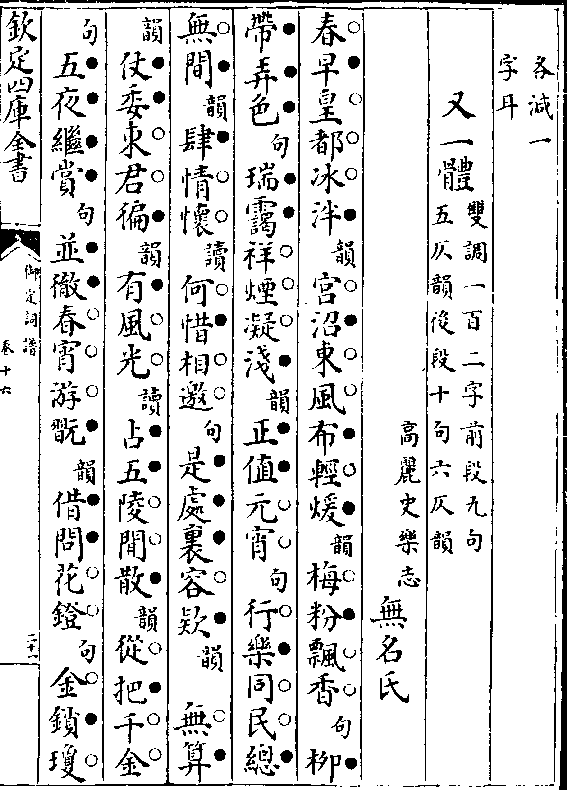 各減一
字耳
又一體雙調一百二字前段九句
五仄韻後段十句六仄韻
高麗史樂志無名氏
春早皇都冰泮韻宮沼東風布輕煖韻梅粉飄香句柳
帶弄色句瑞靄祥煙凝淺韻正值元宵句行樂同民總
無間韻肆情懷讀何惜相邀句是處裏容欵韻無算
韻仗委東君徧韻有風光讀占五陵閒散韻從把千金
句五夜繼賞句並徹春宵游翫韻借問花鐙句金鎖瓊
欽定四庫全書
御定詞譜
卷十六
二十一